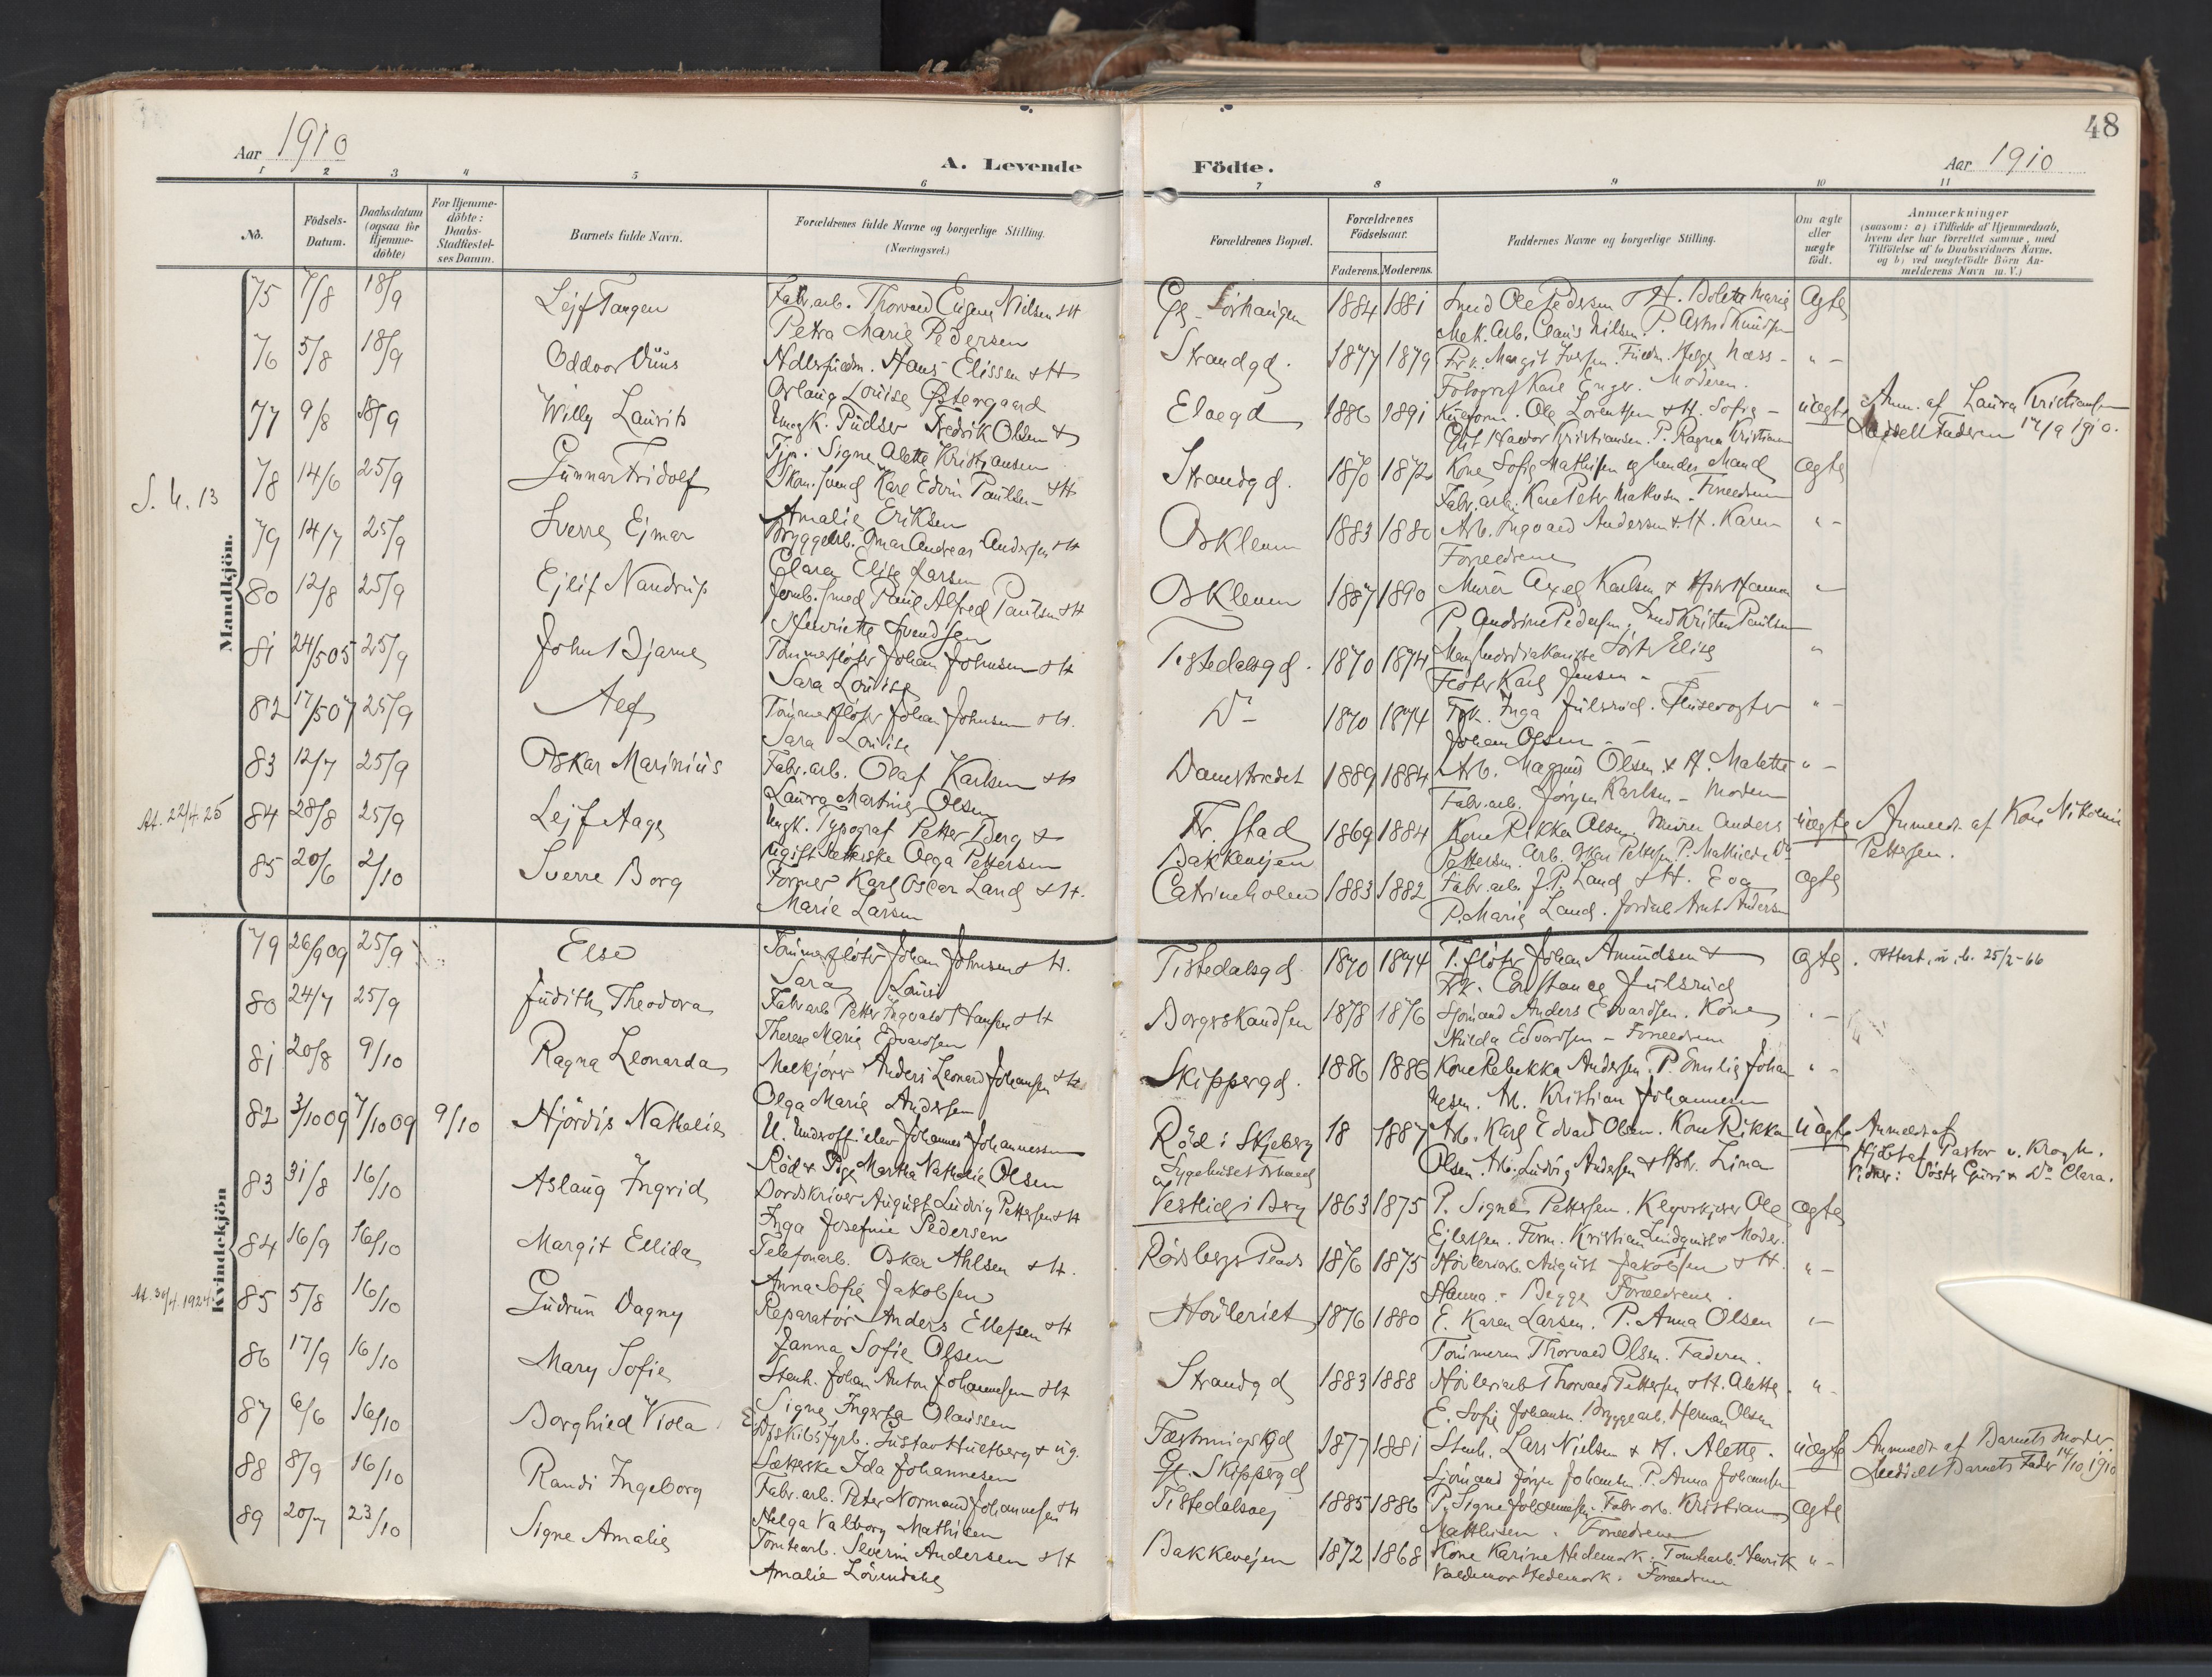 48
Aar 1910
A. Levende Födte.
Aar 1910
1 2 3 4 5 6 7 8 9 10 11
No.
Födsels-Datum.
Daabsdatum (ogsaa for Hjemmedöbte)
For Hjemmedöbte: Daabs-Stadfæstelses Datum.
Barnets fulde Navn.
Forældrenes fulde Navne og borgerlige Stilling. (Næringsvei.)
Forældrenes Bopæl.
Forældrenes Födselsaar.
Faderens. Moderens.
Faddernes Navne og borgerlige Stilling.
Om ægte eller uægte födt.
Anmærkninger
(saasom: a) i Tilfælde af Hjemmedaab, hvem der har forrettet samme, med Tilföielse af to Daabsvidners Navne, og b) ved uegtefödte Börn Anmelderens Navn m. V.)
Mandkjön.
75 7/8 18/9 Lejf Tangen Fabr.arb. Thorvald Eugen Nilsen & H
Petra Marie Pedersen
1884 1881 Smed Ole Pedersen & H. Bolette Marie Ægte
Mek. Arb. Claus Nilsen. P. Astrid Knudsen
76 5/8 18/9 Oddvar Duus Hans Elissen & H
Aslaug Louise Østergaard
Strandgd. 1877 1879 Frk. Margit Iversen. Helge Næss - " -
Fotograf Karl Enger. Moderen.
77 9/8 18/9 Willy Laurits Ungk. Pudser Fredrik Olsen &
Tjp. Signe Alette Kristiansen
1886 1891 Ole Lorentsen & H. Sofie - uægte Anm. af Laura Kristiansen
Gut Halvor Kristiansen. P. Ragna Kristiansen Faderen 17/9 1910.
S. h. 13
78 14/6 25/9 Gunnar Fridolf Skom. svend Karl Edvin Paulsen & H
Amalie Eriksen
Strandgd. 1870 1872 Kone Sofie Mathisen og hendes Mand Ægte
Fabr. arb. Karl Peter - Forældrene
79 14/7 25/9 Sverre Ejmar Bryggearb. Omar Andreas Andersen & H
Clara Elise Larsen
Oskleven 1883 1880 Arb. Ingvald Andersen & H. Karen " -
Forældrene
80 12/8 25/9 Ejlif Nandrup Jernb. smed Paul Alfred Paulsen & H
Henriette Svendsen
Oskleven 1887 1890 Murer Axel Karlsen & Hanna
P. Andrine Pedersen, Smed Kristen Paulsen
81 24/5 05 25/9 John Bjarne Tømmerfløter Johan Johnsen & H
Sara Louise
Tistedalsgd. 1870 1874 Menighedsdiakonisse Søster Elise "
Fløter Karl Jensen -
82 17/5 07 25/9 Alf Tømmerfløter Johan Johnsen & H.
Sara Louise
Do 1870 1874 Frk. Inga Julsrud. Slusevogter " -
Johan Olsen - -
83 12/7 25/9 Oskar Marinius Fabr. arb. Olaf Karlsen & H
Laura Martine Olsen
Damstrædet 1889 1884 Arb. Magnus Olsen & H. Malette " -
Fabr. arb. Jørgen Karlsen - Moderen
At. 22/4 25
84 28/8 25/9 Lejf Aage Ungk. Typograf Petter Berg &
ugift Olga Pettersen
Fr. stad Bakkevejen 1869 1884 Kone Rikka Olsen. Murer Anders uægte Anmeldt af Kone Nikoline
Pettersen. Arb. Oskar Pettersen. P. Mathilde Do Pettersen.
85 20/6 2/10 Sverre Borg Former Karl Oscar Land & H.
Marie Larsen
Catrineholm 1883 1882 Fabr. arb. J. P. Land & H. Eva Ægte
P. Marie Land. Arnt Andersen
Kvindekjön
79 26/9 09 25/9 Else Tømmerfløter Johan Johnsen & H.
Sara Louise
Tistedalsgd. 1870 1874 T. fløter Johan Amundsen & Ægte. Attest. u. h. 25/2-66
Frk. Constance Julsrud
80 24/7 25/9 Judith Theodora Fabr arb Petter Ingvald Hansen & H
Therese Marie Edvardsen
Borgerskandsen 1878 1876 Sjømand Anders Edvardsen. Kone " -
Hulda Edvardsen - Forældrene
81 20/8 9/10 Ragna Leonarda Melkjører Anders Leonard Johansen & H
Olga Marie Andersen
Skippergd. 1886 1886 Kone Rebekka Andersen. P. Emilie Johan- " -
nesen. Arb. Kristian Johannesen
82 3/10 09 7/10 09 9/10 Hjørdis Nathalie U. Underoff. elev Johannes Johannessen
Rød & Pige Martha Nathalie Olsen
Rød i Skjeberg 18 1887 Arb. Karl Edvard Olsen. Kone Rikka uægte Anmeldt af
Sygehuset Olsen. Arb. Ludvig Andersen & Hstr. Lina Hjdbt af Pastor v. Krogh.
Vidner: Søster Guri & Do Clara.
83 31/8 16/10 Aslaug Ingrid Bordskriver August Ludvig Pettersen & H
Inga Josefine Pedersen
Vestlie i Berg 1863 1875 P. Signe Pettersen. Ole Ægte
Ejlertsen. Form. Kristian Lindquist & Moder.
84 16/9 16/10 Margit Ellida Telefonarb. Oskar Ahlsen & H.
Anna Sofie Jakobsen
Rødsbergs Plads 1876 1875 Høvleriarb. August Jakobsen & H. " -
Hanna - Begge Forældrene.
At. 30/4. 1924
85 5/8 16/10 Gudrun Dagny Reparatør Anders Ellefsen & H
Janna Sofie Olsen
Høvleriet 1876 1880 E. Karen Larsen. P. Anna Olsen " -
Tømmerm. Thorvald Olsen. Faderen.
86 17/9 16/10 Mary Sofie Stenh. Johan Anton Johannesen & H
Signe Ingerta Olaussen
Strandgd 1883 1888 Høvleriarb Thorvald Pettersen & H. Alette. " -
E. Sofie Johansen. Bryggearb. Herman Olsen
87 6/6 16/10 Borghild Viola Dskibsfyrb. Gustav Hultberg & ug.
Ida Johannesen
Fæstningsgd Gl. Skippergd 1877 1881 Stenh. Lars Nielsen & H. Alette. uægte Anmeldt af Barnets Moder
Sjømand Jørgen Johansen. P. Anna Johansen Barnets Fader 14/10 1910
88 8/9 16/10 Randi Ingeborg Fabr. arb. Peter Normand Johannesen & H
Helga Valborg Mathisen
Tistedalsvej 1885 1886 P. Signe Johannesen. Fabr arb. Kristian Ægte
Matthisen. Forældrene
89 20/7 23/10 Signe Amalie Tomtearb. Severin Andersen & H
Amalie Lövendahl
Bakkevejen 1872 1868 Kone Karine Hedemark. Tomtearb. Henrik " -
Valdemar Hedemark. Forældrene